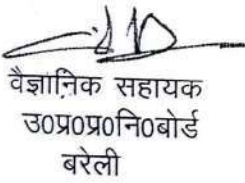 वैज्ञानिक सहायक
उ0प्र0प्र0नि0बोर्ड
बरेली